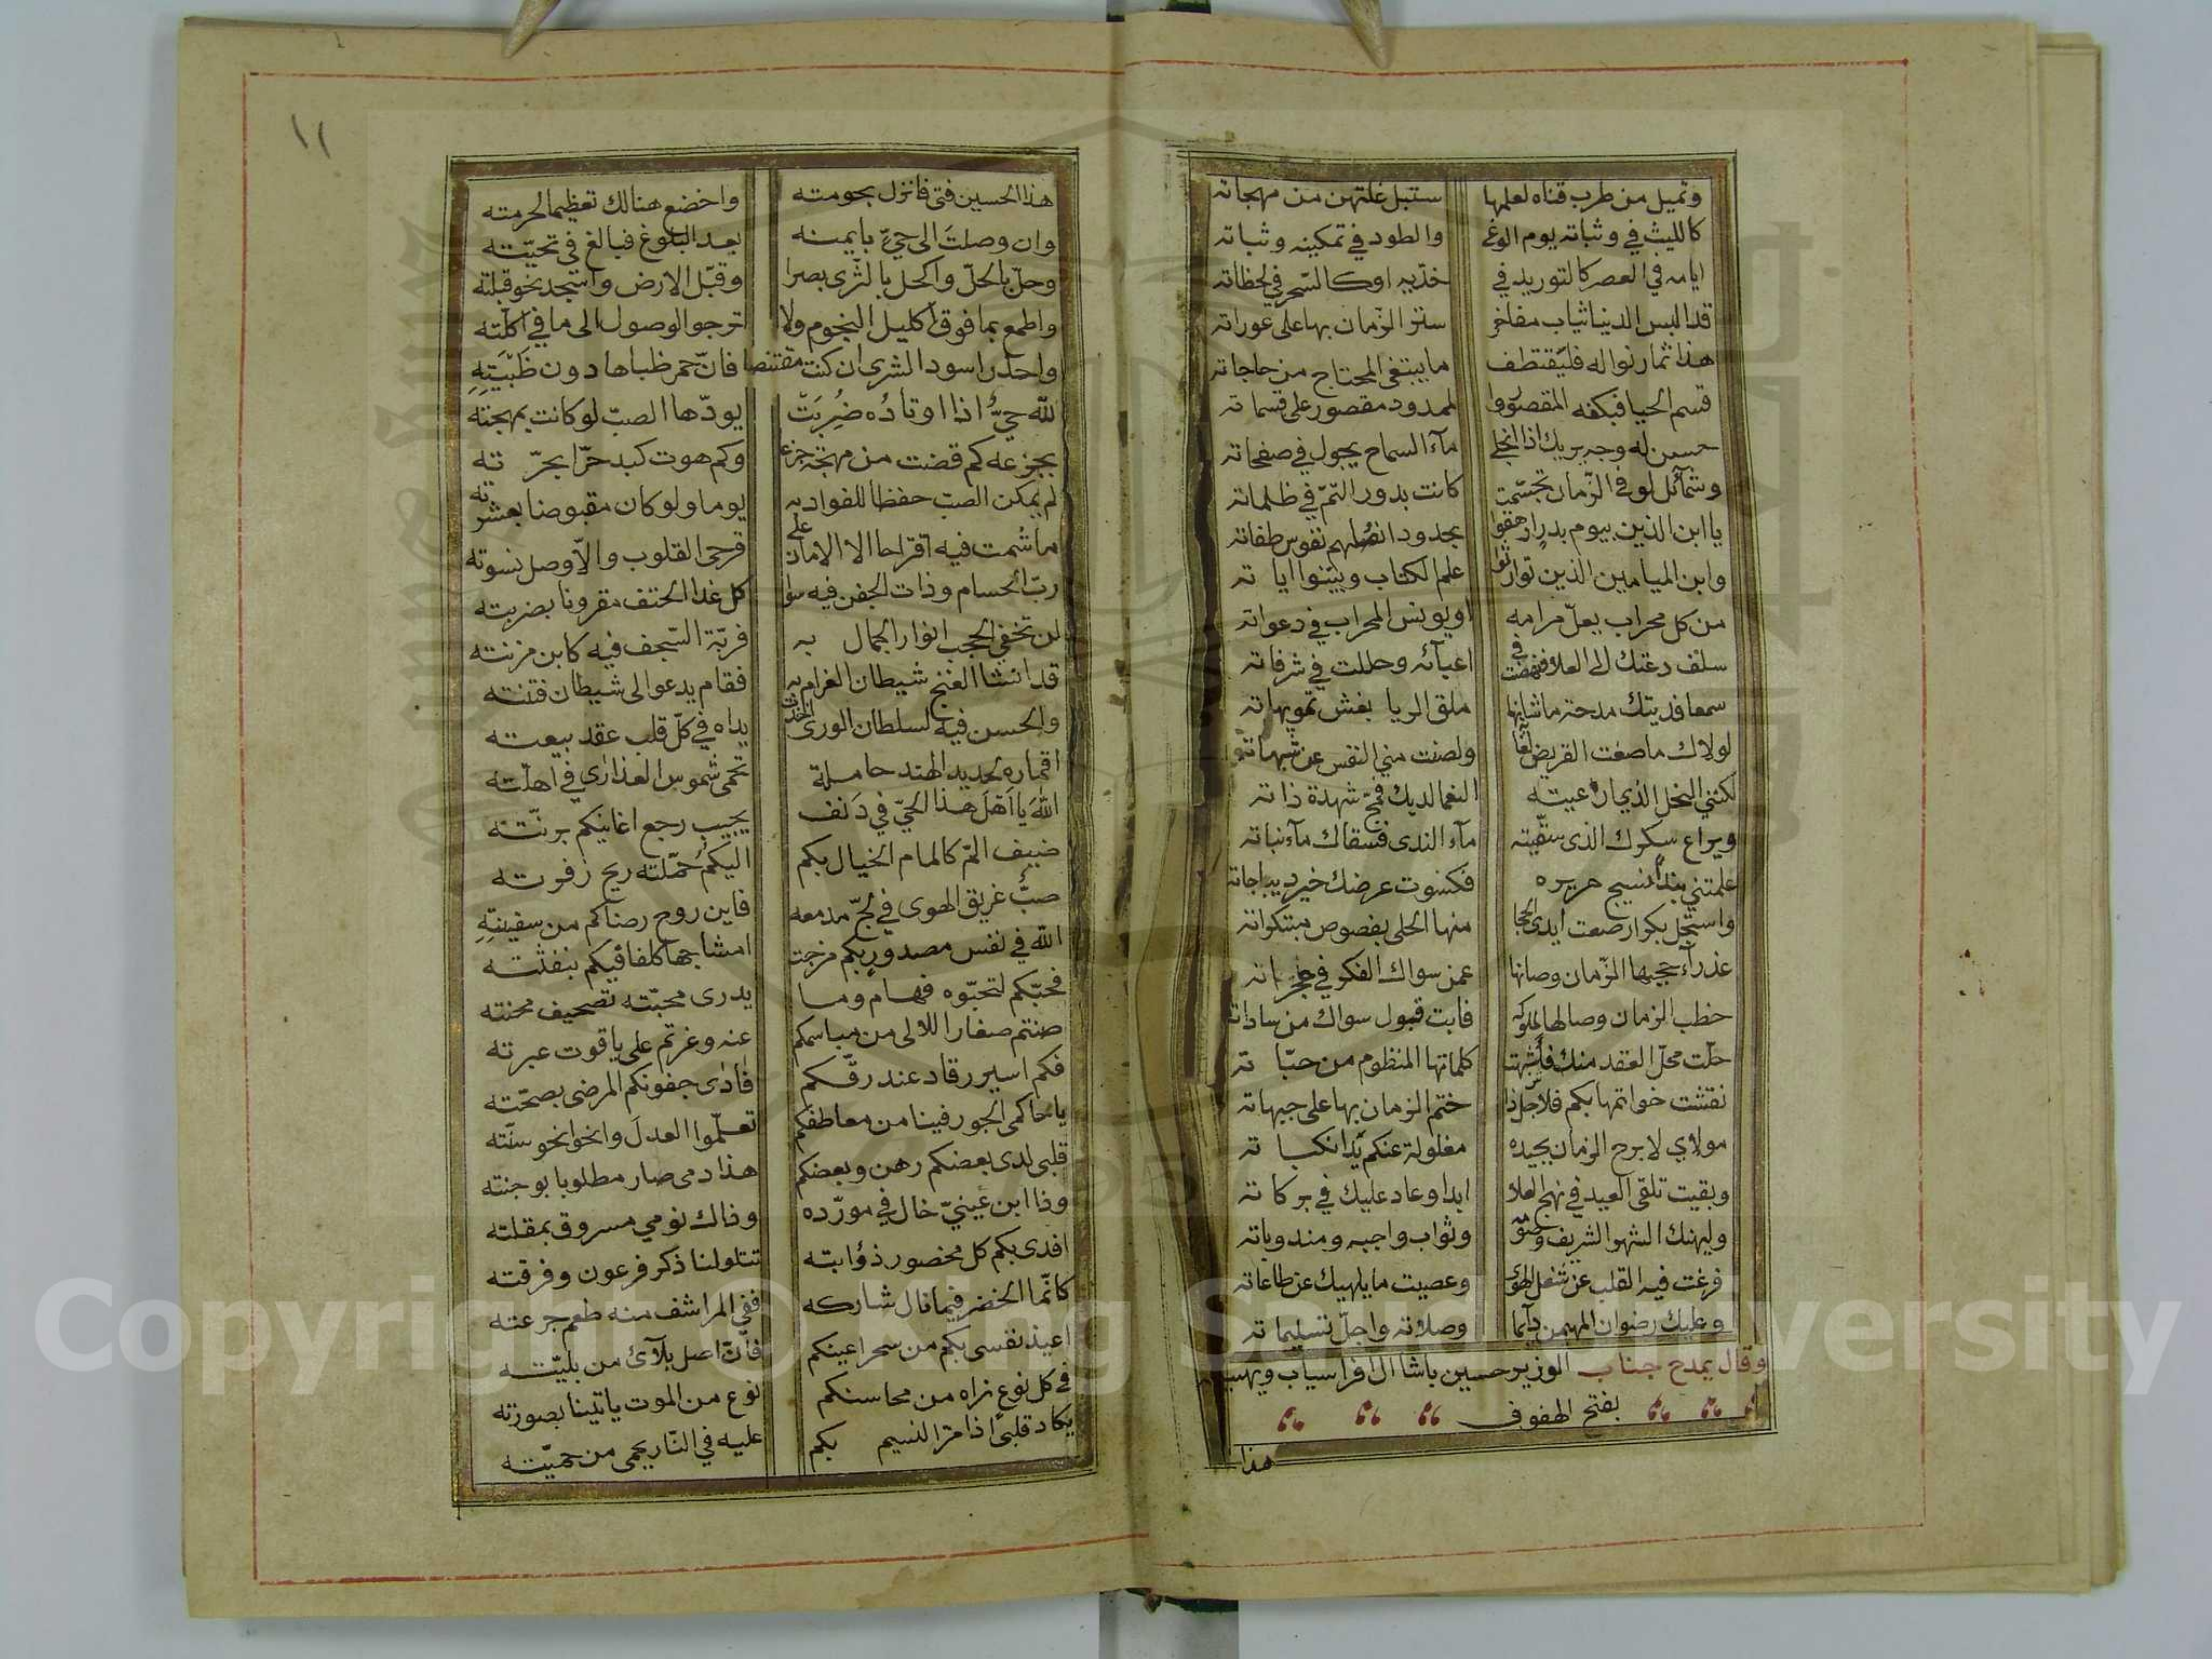 وتميل من طرب قناه لعلمها ستبل غلتهن من مهجاته
كالليث في وثباته يوم الوغى والطود في تمكينه وثباته
ايامه في العصر كالتوريد في خديه اوكالسحر في لحظاته
قد البس الدنيا ثياب مفاخر ستر الزمان بها على عوراته
هذا ثمار نواله فليقتطف ما يبتغى المحتاج من حاجاته
قسم الحيا فبكفه المقصور والممدود مقصور على قسماته
حسن له وجه يريك اذا انجلى ماء السماح يجول في صفحاته
وشمائل لو في الزمان تجسمت كانت بدور التم في ظلماته
يا ابن الذين بيوم بدر ازهقوا بحدود انصلهم نفوس طغاته
وابن الميامين الذين توارثوا علم الكتاب وبينوا اياته
من كل محراب يعل مرامه اويونس المحراب في دعواته
سلف دعتك الى العلا فنهضت في اعبائه وحللت في شرفاته
سمعا فديتك مدحة ما شابها ملق الريا بغش تمويهاته
لولاك ما صغت القريض ولصنت مني النفس عن شبهاته
لكنني النحل الذي رعيته النعما لديك فمج شهدة ذاته
ويراع سكرك الذى سقيته ماء الندى فسقاك ماء نباته
علمتني بنداك نسيج حريره فكسوت عرضك خير ديباجاته
واستجل بكرا رصعت ايدى الحجا منها الحلى بفصوص مبتكراته
عذراء حجبها الزمان وصانها عمن سواك الفكر في حجراته
خطب الزمان وصالها لملوكه فابت قبول سواك من ساداته
حلت محل العقد منك فاشبهت كلماتها المنظوم من حباته
نقشت خواتمها بكم فلاجل ذا ختم الزمان بها على جبهاته
مولاي لا برح الزمان بجيده مغلولة عنكم يدا نكباته
وبقيت تلقى العيد في نهج العلا ابدا وعاد عليك في بركاته
وليهنك الشهر الشريف وثواب واجبه ومندوباته
فرغت فيه القلب عن شغل الهوى وعصيت ما يلهيك عن طاعاته
وعليك رضوان المهيمن دائما وصلاته واجل تسليماته
وقال يمدح جناب الوزير حسين باشا ال افراسياب ويهنيه
بفتح الهفوف
هذا
١١
هذا الحسين فتى فانزل بحومته واخضع هنالك تعظيما لحرمته
وان وصلت الى حيّ بايمنه بعد البلوغ فبالغ في تحيته
وحل بالحل واكحل بالثرى بصرا وقبل الارض واسجد نحو قبلته
واطمع بما فوق اكليل النجوم ولا ترجو الوصول الى ما في اكلته
واحذر اسود الشرى ان كنت مقتنصا فان حمر ظباها دون ظبيته
لله حيّ اذا اوتاده ضربت يودها الصب لو كانت بمهجته
بجزعه كم قضت من مهجة جزعا وكم هوت كبد حرا بحرته
لم يمكن الصب حفظا للفواد به يوما ولو كان مقبوضا بعشرته
ما شمت فيه اقراحا الا الامان على قرحى القلوب والا وصل نسوته
رب الحسام وذات الجفن فيه سوا كل غدا الحتف مقرونا بضربته
لن تخفي الحجب انوار الجمال به فربة السجف فيه كابن مزنته
قد انشا الغنج شيطان الغرام به فقام يدعو الى شيطان فتنته
والحسن فيه لسلطان الورى اخذت يداه في كل قلب عقد بيعته
اقماره بحديد الهند حاملة تحمى شموس العذارى في اهلته
الله يا اهل هذا الحي في دنف يجيب رجع اغانيكم برنته
ضيف الم كالمام الخيال بكم اليكم حملته ريح زفرته
صب غريق الهوى في لج مدمعه فاين روح رضاكم من سفينته
الله في نفس مصدور بكم مزجت امشاجها كلفا فيكم بنفثته
فحبكم لتحبوه فهام وما يدرى محبته تصحيف محنته
صنتم صغار اللالى من مباسمكم عنه وغرتم على ياقوت عبرته
فكم اسير رقاد عند رقكم فادى جفونكم المرضى بصحته
يا حاكمى الجور فينا من معاطفكم تعلموا العدل وانحوا نحو سنته
قلبى لدى بعضكم رهن وبعضكم هذا دمى صار مطلوبا بوجنته
وذا ابن عيني خال في مورده وذاك نومي مسروق بمقلته
افدى بكم كل مخصور ذؤابته تتلو لنا ذكر فرعون وفرقته
كانما الخضر فيما نال شاركه ففي المراشف منه طعم جرعته
اعيذ نفسى بكم من سحر اعينكم فان اصل بلائ من بليته
في كل نوع نراه من محاسنكم نوع من الموت ياتينا بصورته
يكاد قلبى اذا مر النسيم بكم عليه في النار يحمى من حميته
Copyright © King Saud University